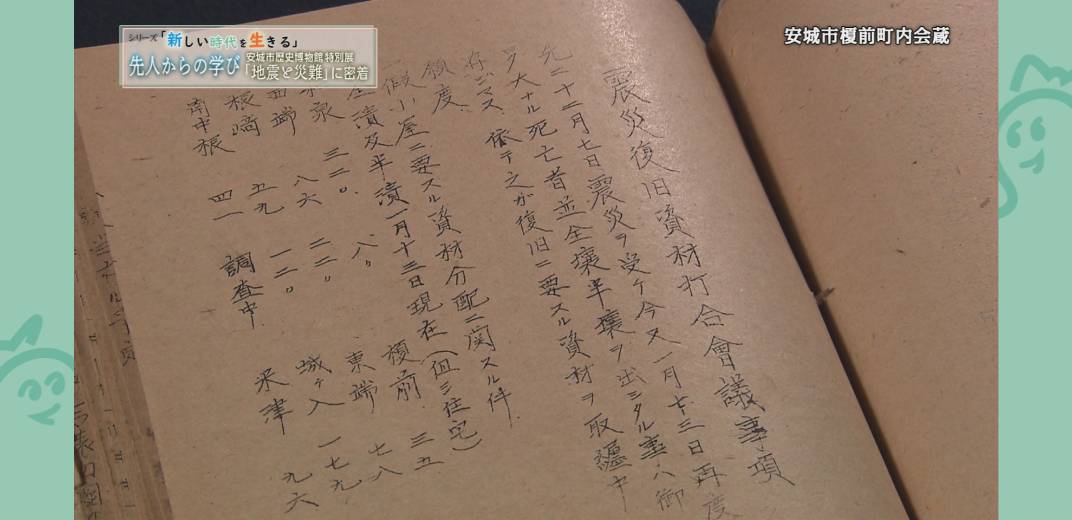 シリーズ「新しい時代を生きる」
先人からの学び
安城市歴史博物館 特別展
「地震と災難」に密着
安城市榎前町内会蔵
震災復旧資材打合會議事項
先ニ十二月七日震災ヲ受ケ今又一月十三日再度
大ナル死亡者並全壊半壊ヲ出シタル事ハ御
依テ之が復旧ニ要スル資材ヲ取纏中
願度
假小屋ニ要スル資材分配ニ関スル件
潰及半潰一月十三日現在(但シ住宅)
三二〇 八〃 榎前 三五
八六 二二〃 東端 七八
根崎 五九 一二〃 城ヶ入 一七九
南中根 四一 調査中 米津 九六